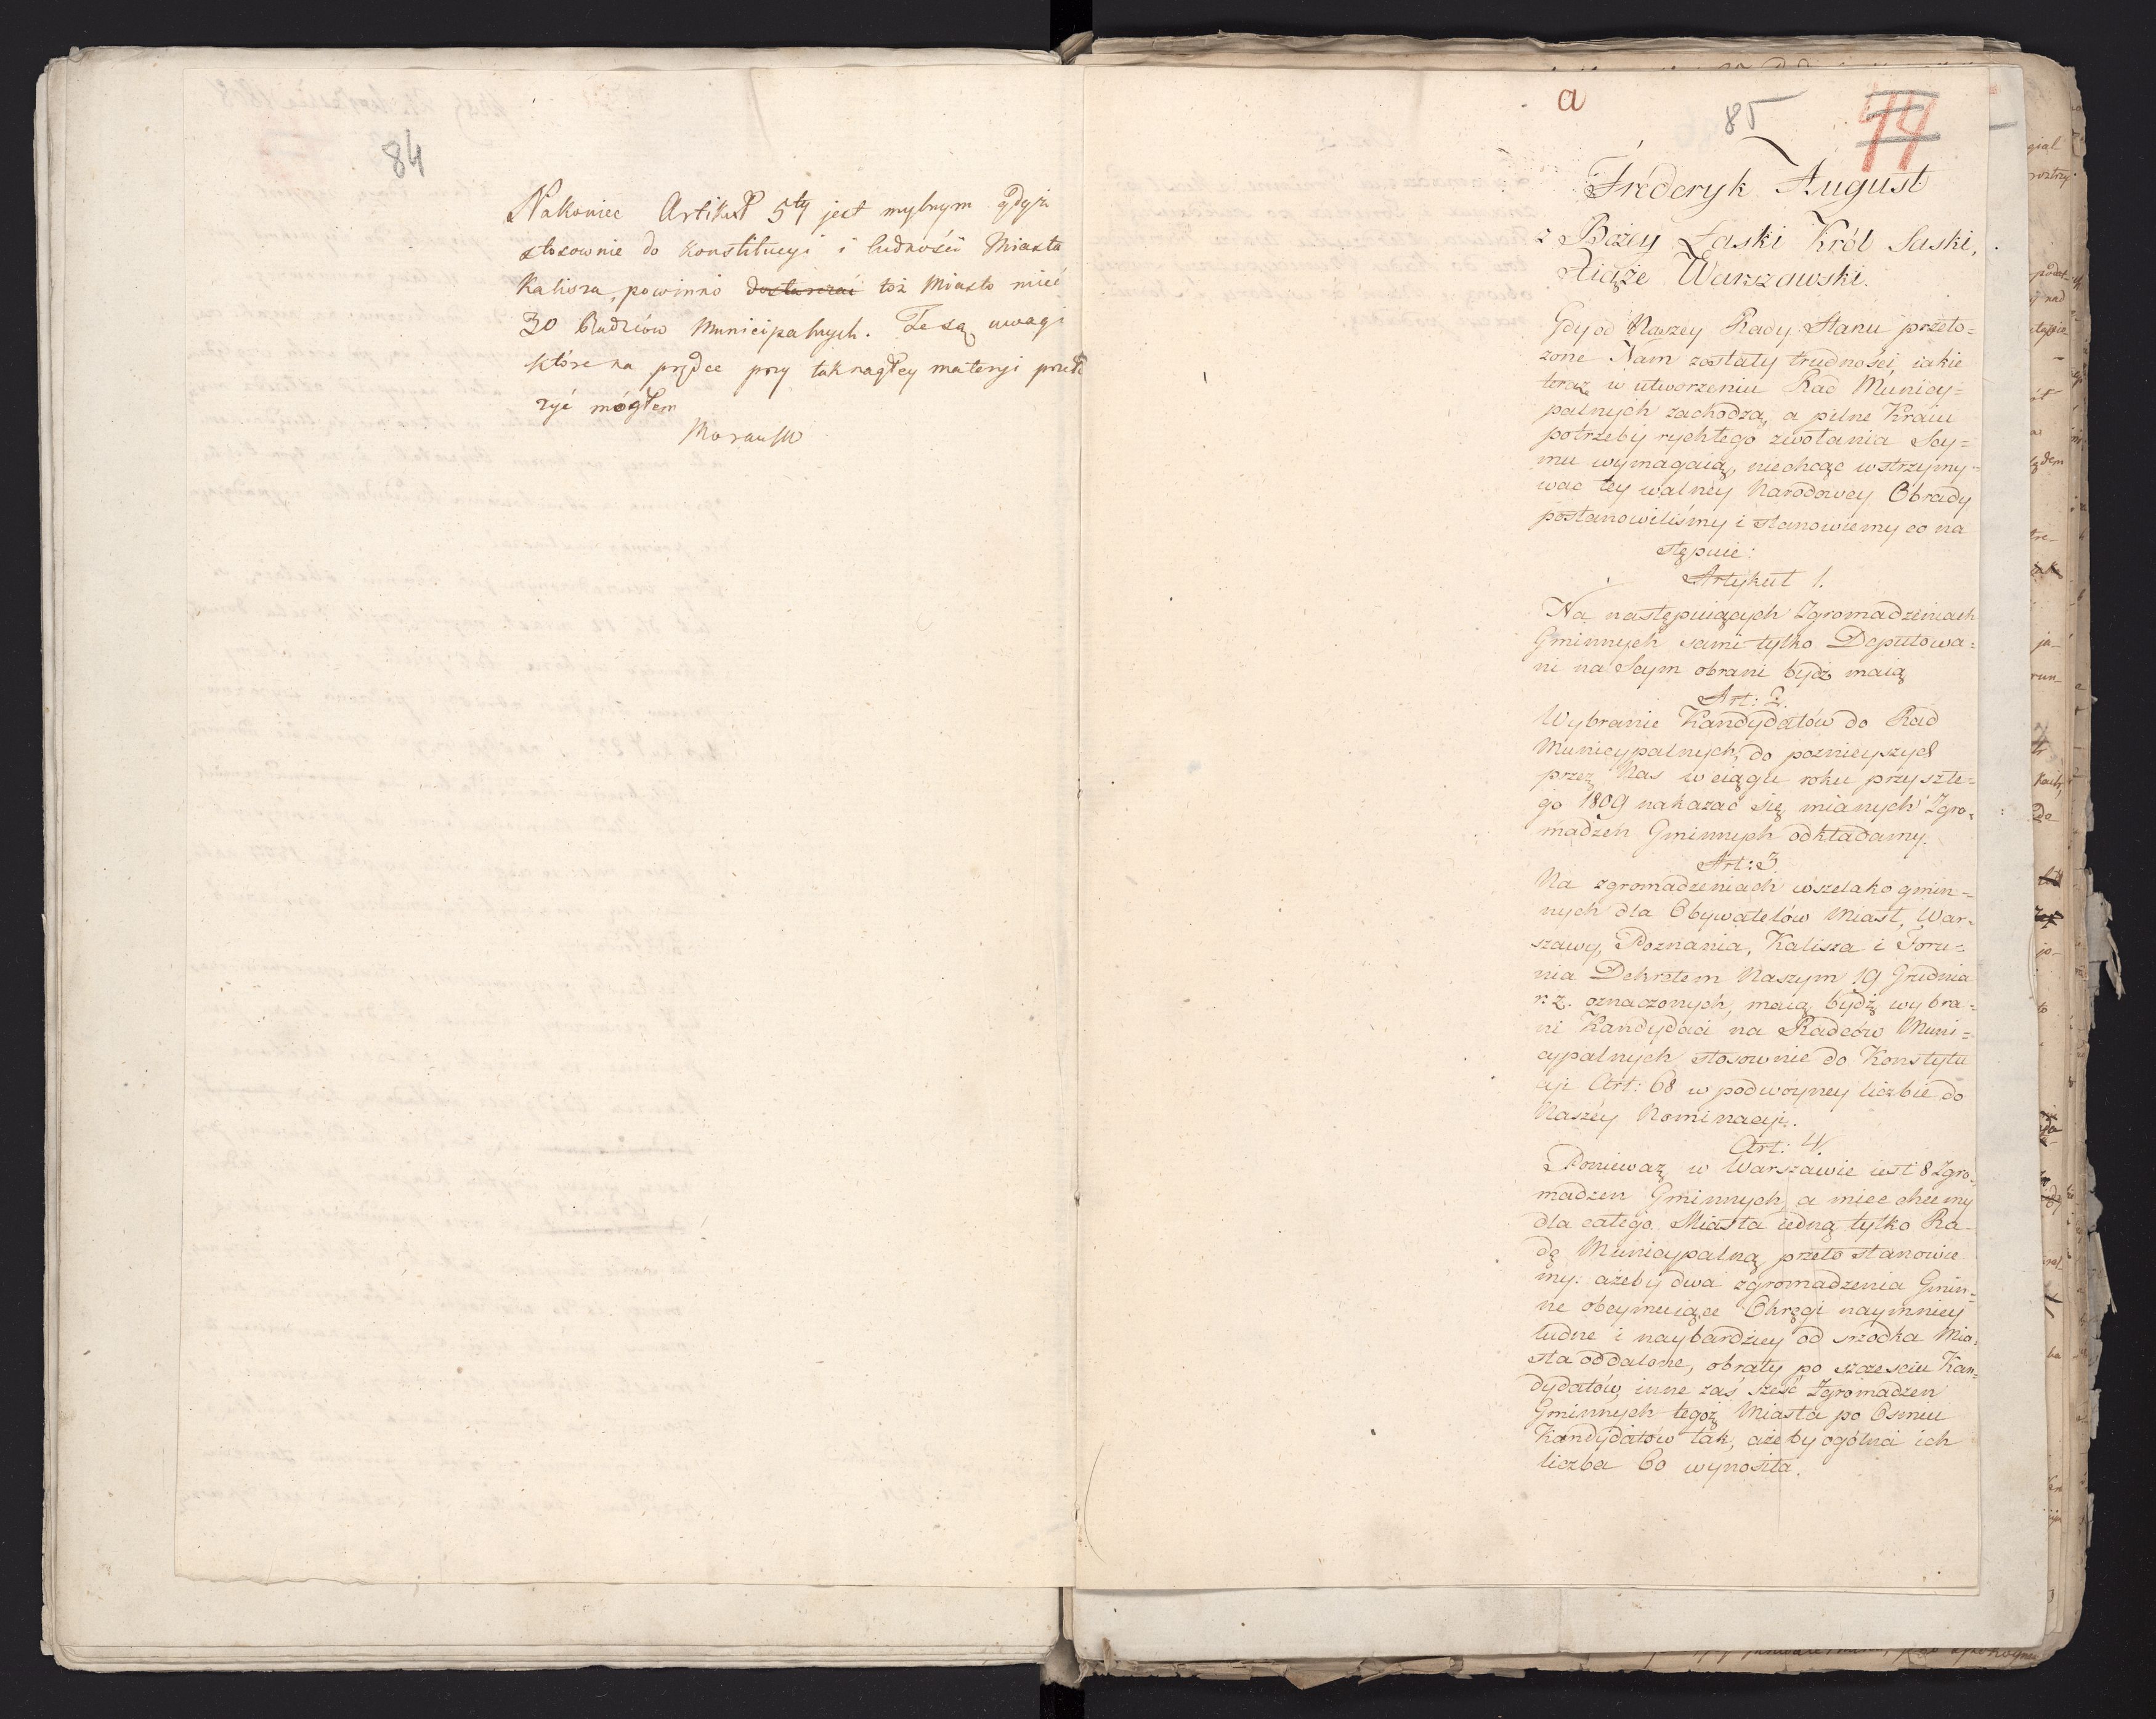 84
Nakoniec Artikuł 5ty jest mylnym gdyż
stosownie do Konstitucyi i ludności Miasta
Kalisza, powinno dostarczać toż Miasto mieć
30 Radzców Municipalnych. Te są uwagi
które na prędce przy tak nagłey materyi przeło
żyć mógłem
a
85
44
Frederyk August
z Bożey Łaski Król Saski,
Xiąże Warszawski.
Gdy od Naszey Rady Stanu przeło=
żone Nam zostały trudności, iakie
teraz w utworzeniu Rad Municy=
palnych zachodzą, a pilne Kraiu
potrzeby rychłego zwołania Sey=
mu wymagaią, niechcąc wstrzymy=
wać tey walney Narodowey Obrady
postanowiliśmy i stanowiemy co na
stępuie:
Artykuł 1.
Na następuiących Zgromadzeniach
Gminnych sami tylko Deputowa=
ni na Seym obrani bydź maią
Art: 2.
Wybranie Kandydatów do Rad
Municypalnych, do poznieyszych
przez Nas w ciągu roku przyszłe=
go 1809 nakazać się mianych Zgro=
madzeń Gminnych odkładamy.
Art: 3.
Na zgromadzeniach wszelako gmin=
nych dla Obywatelów Miast, War=
szawy, Poznania, Kalisza i Toru=
nia Dekretem Naszym 19 Grudnia
r: z. oznaczonych, maią bydź wybra=
ni Kandydaci na Radców Muni=
cypalnych stosownie do Konstytu
cyi Art: 68 w podwoyney liczbie do
Naszéy Nominacyi.
Art: 4.
Ponieważ w Warszawie iest 8 Zgro=
madzen Gminnych, a mieć chcemy
dla całego Miasta iedną tylko Ra=
dę Municypalną przeto stanowie
my: ażeby dwa zgromadzenia Gmin=
ne obeymuiące Okręgi naymniey
ludne i naybardziey od srzodka Mia=
sta oddalone, obrały po szczesciu Kan=
dydatów, inne zaś sześć Zgromadzen
Gminnych tegoż Miasta po Osmiu
Kandydatów tak, ażeby ogólna ich
liczba 60 wynosiła.